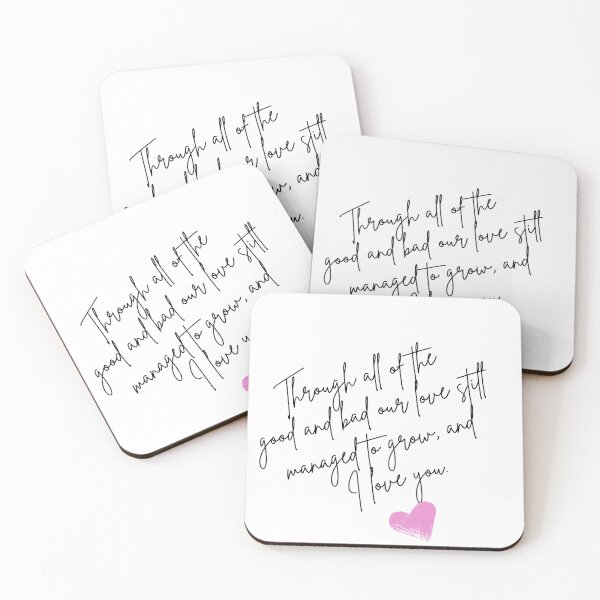 Through all of the
good and bad our love still
managed to grow, and
I love you.
Through all of the
good and bad our love still
managed to grow, and
I love
Through all of the
good and bad our love still
managed to grow, and
Through all of the
our love still
grow, and
you.